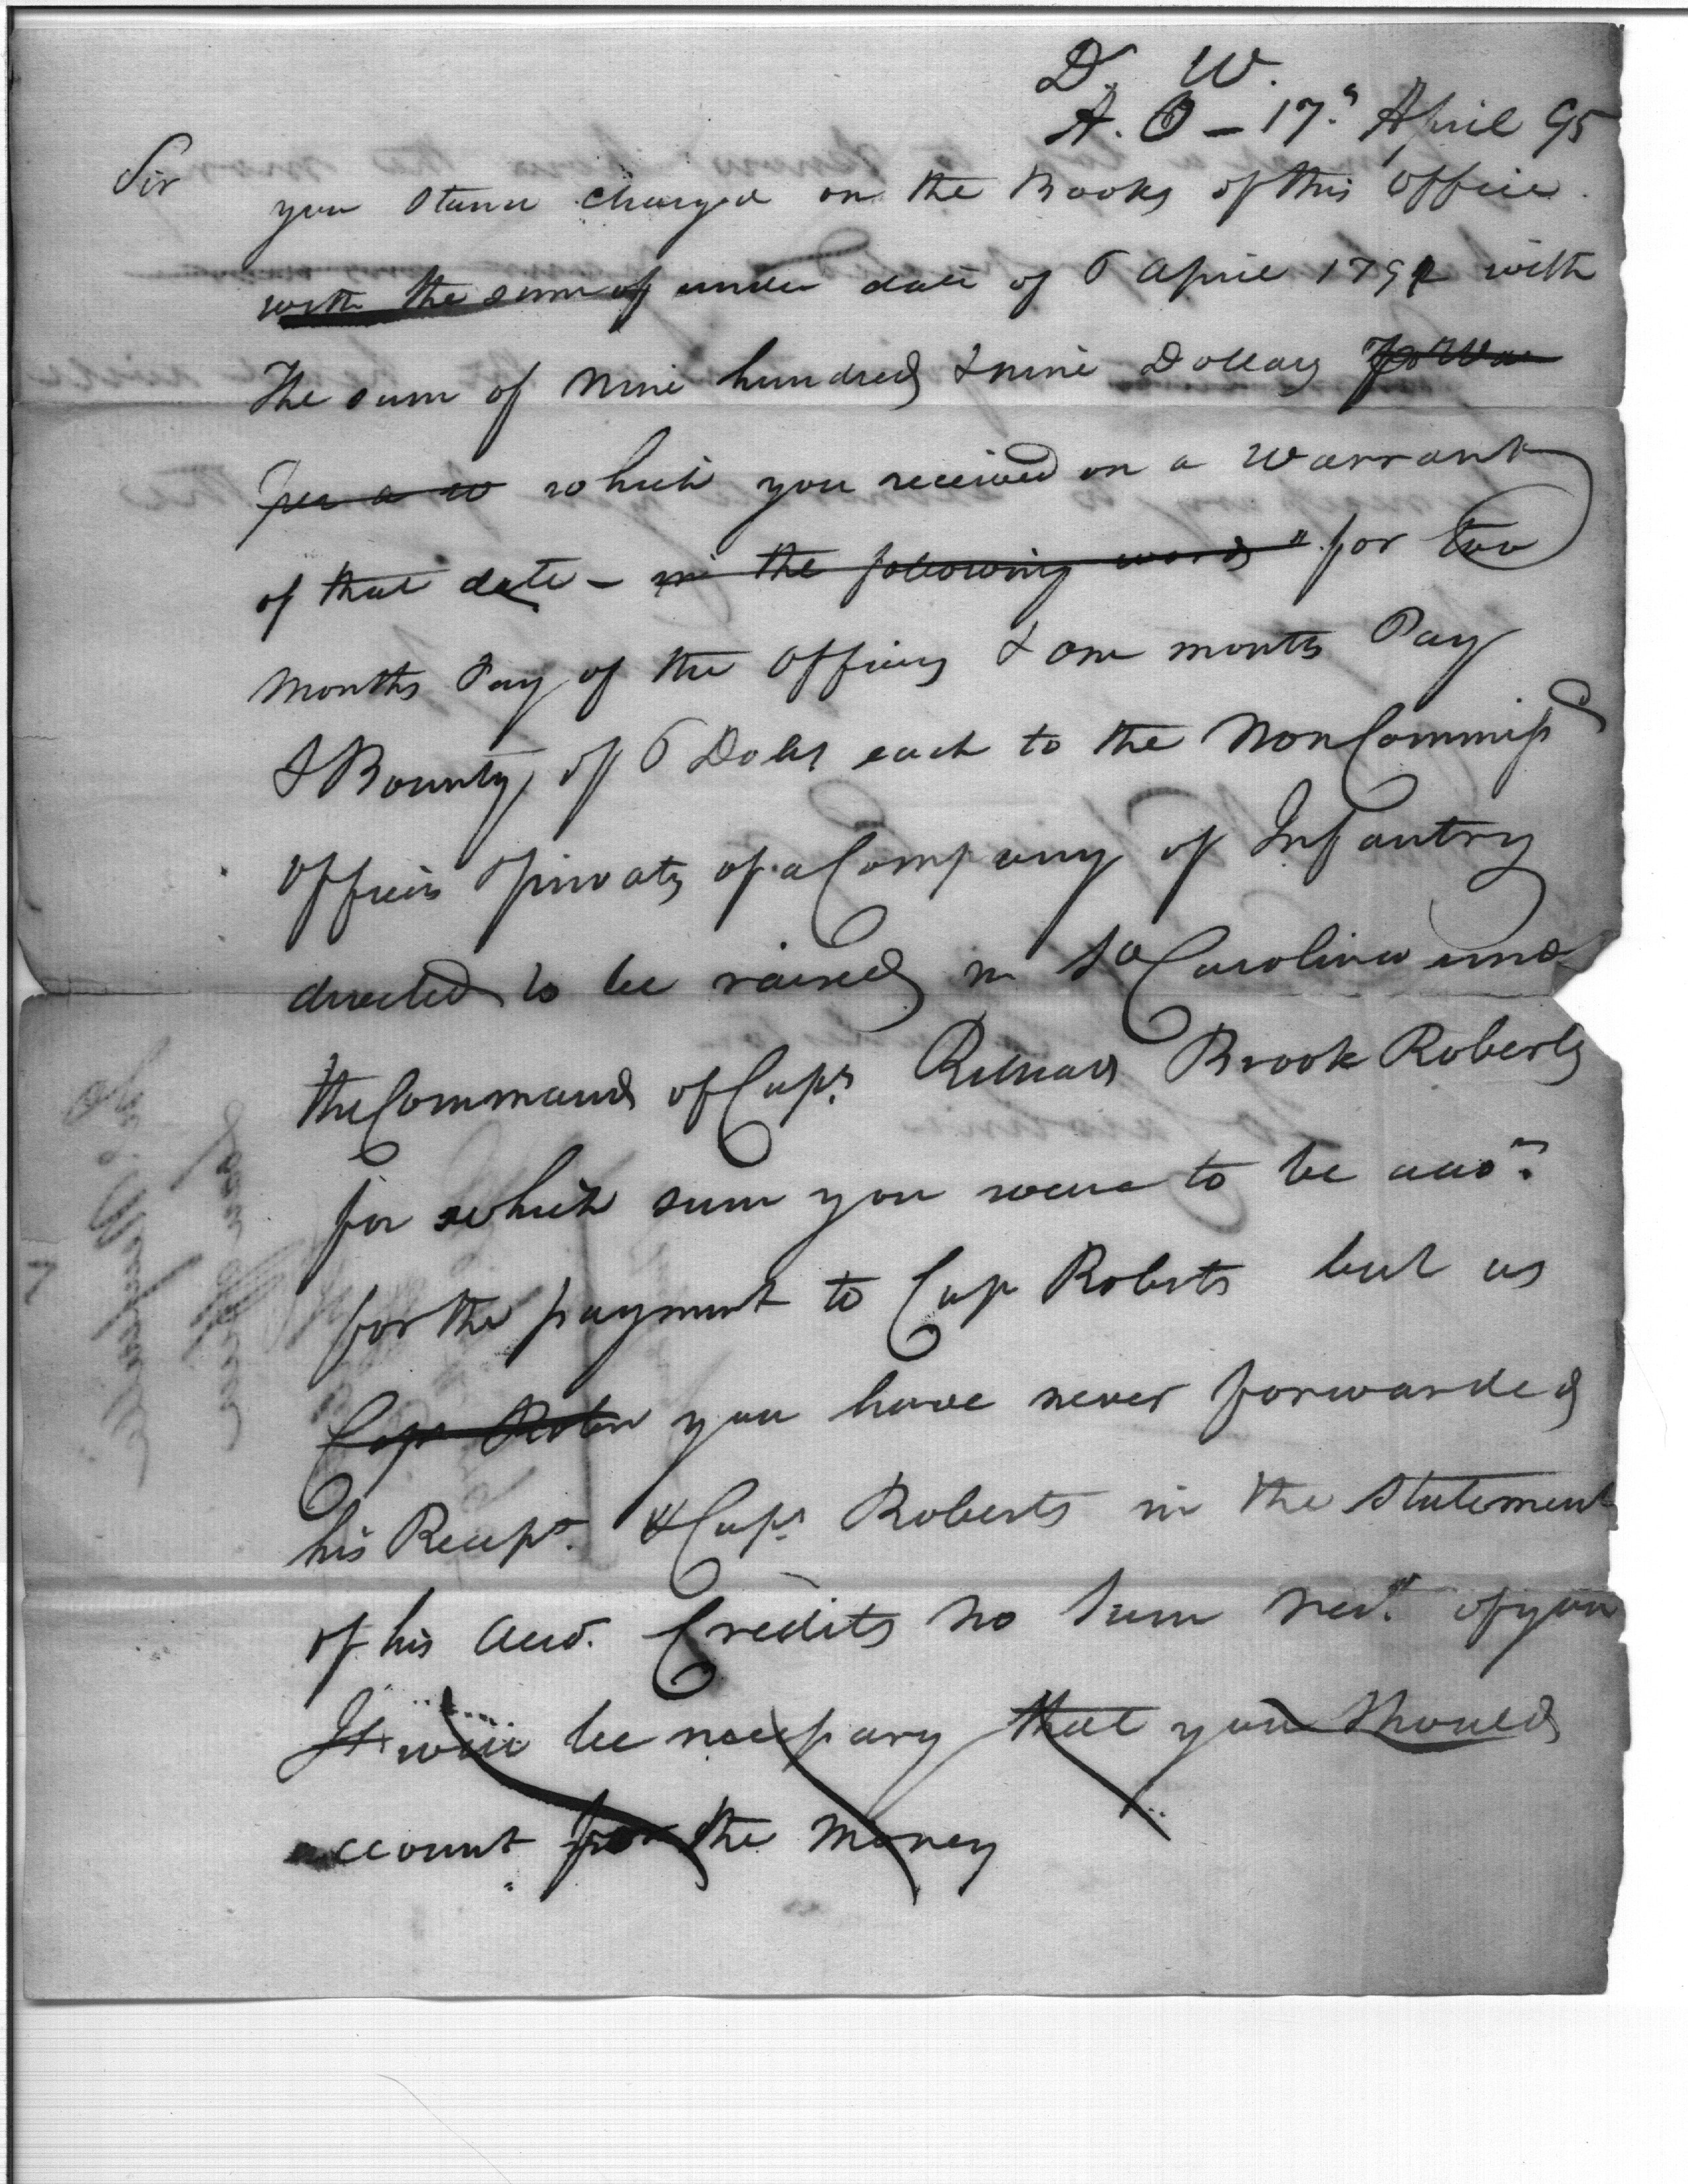 D. W.
A. O – 17.th April 95
Sir
you stand charged on the Books of this office
with the sum of under date of 6 April 1791 with
The sum of Nine hundred & nine Dollars for War
per a w which you received on a Warrant
of that date – in the following words " for two
months Pay of the officers & one months Pay
& Bounty of 6 Dolls each to the NonCommissd
officers & privates of a Company of Infantry
directed to be raised in So Carolina und
the Command of Capt. Richard Brook Roberts
for which sum you were to be acco.
for the payment to Cap Roberts but as
Capt Rober you have never forwarded
his Recept. & Capt. Roberts in the Statement
of his Acco. Credits no sum recd. of you
It will be necessary that you should
account for the money